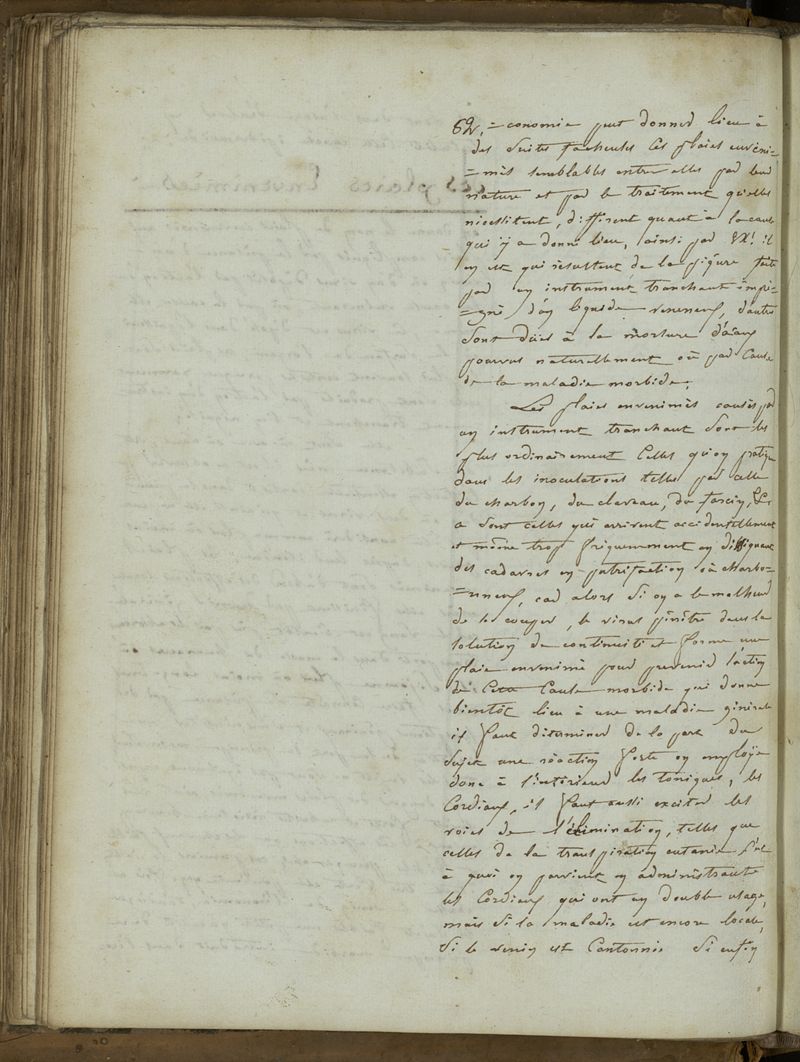 62. =conomie peut donner lieu à
des suite facheuses les plaies enveni=
=més semblables entre elles par leur
nature et par le traitement qu'elles
nécessitent, different quant à la cause
qui y a donné lieu, ainsi par Ex! il
en est qui résultent de la piqure faite
par un instrument tranchant impré=
=gné d'un liquide veneneux, d'autres
sont dües à la morsure d'a͞aux
pourvus naturellement où par Cause
de la maladie morbide.
Les plaies envenimés causés par
un instrument tranchant sont les
plus ordinairement Celles qu'on pratique
dans les inoculations telles par celle
du charbon, du claveau, du farcin, &c
a sont celles qui arrivent accidentellement
et même trop fréquemment en disséquant
des cadavres en putrifaction où charbo=
=nneux, car alors si on a le malheur
de se couper, le virus pénétre dans la
solution de continuité et forme une
plaie envenimé pour prevenir l'action
de Cette Cause morbide qui donne
bientôt lieu à une maladie générale
il faut déterminer de la part du
sujet une réaction forte on employe
donc à l'intérieur les toniques, les
Cordiaux, il faut aussi exciter les
voies de l'élimination, telles que
celles de la transpiration cutanée C'est
à quoi on parvient en administrant
les Cordiaux qui ont un double usage,
mais si la maladie est encore locale,
si le venin est Cantonnée si enfin